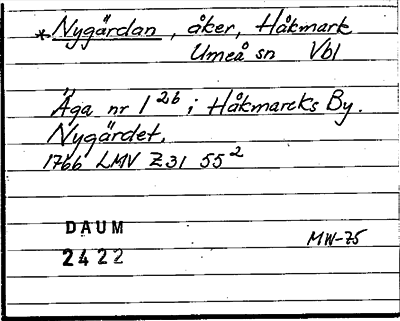 *Nygärdan, åker, Håkmark
Umeå sn Vbl
Äga nr 1 2b i Håkmarcks By.
Nygärdet.
1766 LMV Z31 55²
DAUM
2422
MW-75